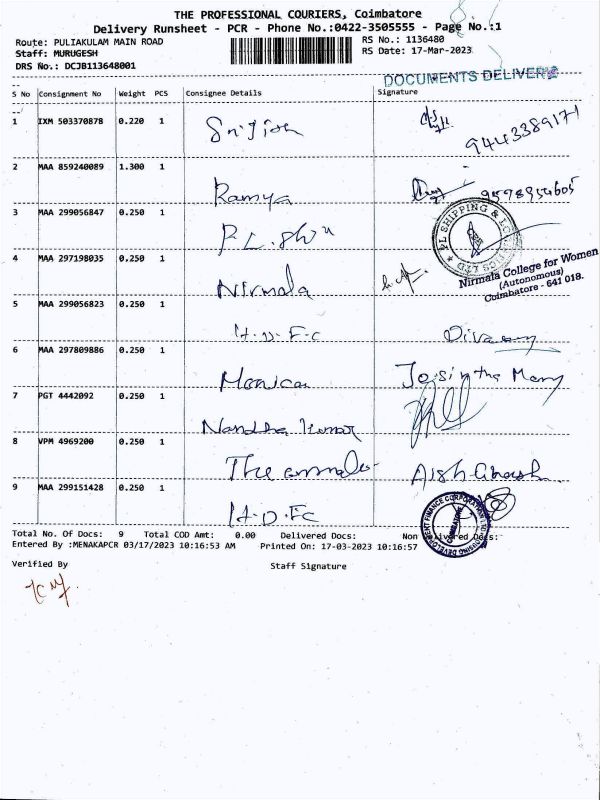 THE PROFESSIONAL COURIERS, Coimbatore
Delivery Runsheet - PCR - Phone No.:0422-3505555 - Page No.:1
Route: PULIAKULAM MAIN ROAD RS No.: 1136480
Staff: MURUGESH RS Date: 17-Mar-2023
DRS No.: DCJB113648001
DOCUMENTS DELIVER
S No Consignment No Weight PCS Consignee Details Signature
1 IXM 503370878 0.220 1
9443389171
2 MAA 859240089 1.300 1
Ramya 9598954605
3 MAA 299056847 0.250 1
P.L.
PL SHIPPING & LOGISTICS LTD
4 MAA 297198035 0.250 1
Nirmala
Nirmala College for Women
(Autonomous)
Coimbatore - 641 018.
5 MAA 299056823 0.250 1
H-D-F-C
6 MAA 297809886 0.250 1
Monica Josintha Mary
7 PGT 4442092 0.250 1
Nandha Kumar
8 VPM 4969200 0.250 1
The
9 MAA 299151428 0.250 1
H-D-FC
Total No. Of Docs: 9 Total COD Amt: 0.00 Delivered Docs: Non Delivered Docs:
Entered By :MENAKAPCR 03/17/2023 10:16:53 AM Printed On: 17-03-2023 10:16:57
Verified By Staff Signature